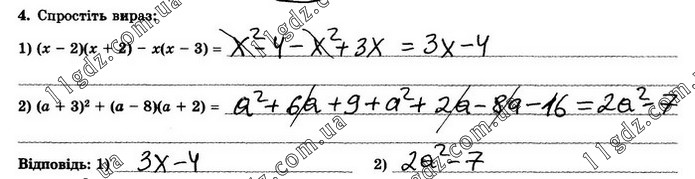 4. Спростіть вираз:
1) (x − 2)(x + 2) − x(x − 3) = x² − 4 − x² + 3x = 3x − 4
2) (a + 3)² + (a − 8)(a + 2) = a² + 6a + 9 + a² + 2a − 8a − 16 = 2a² − 7
Відповідь: 1) 3x − 4 2) 2a² − 7
11gdz.com.ua